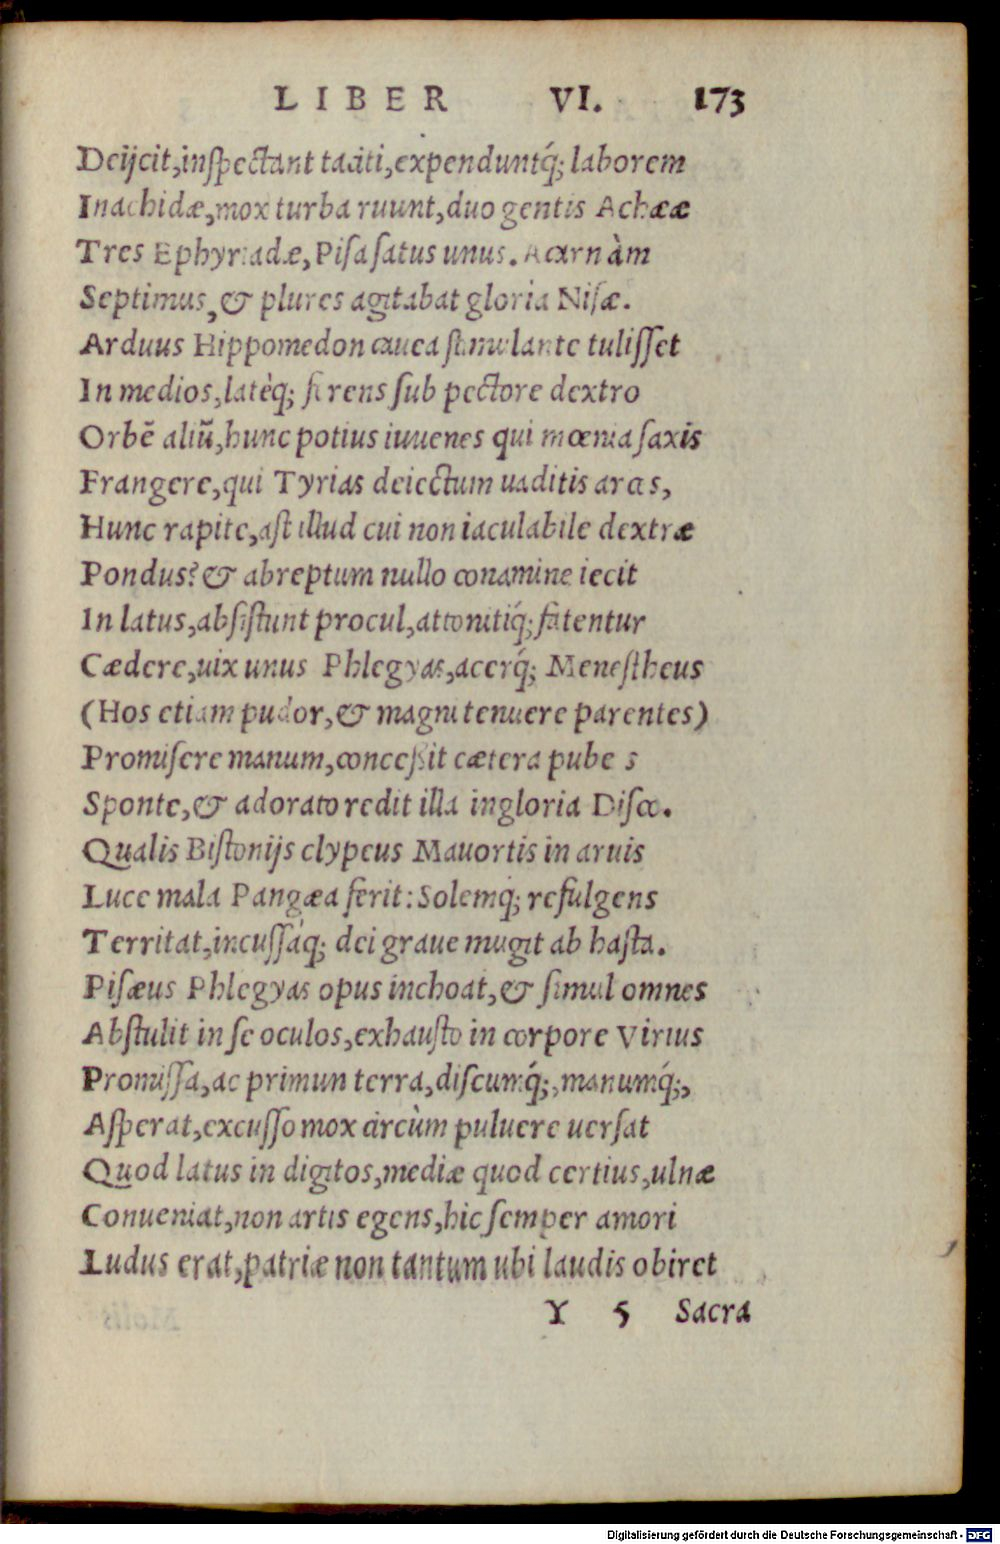 LIBER VI. 173
Deijcit,inſpectant taciti,expenduntq́; laborem
Inachidæ,mox turba ruunt,duo gentis Achææ
Tres Ephyriadæ,Piſa ſatus unus. Acarnàm
Septimus,& plures agitabat gloria Niſæ.
Arduus Hippomedon cauea ſtimulante tuliſſet
In medios,latèq; ferens ſub pectore dextro
Orbẽ aliũ,hunc potius iuuenes qui mœnia ſaxis
Frangere,qui Tyrias deiectum uaditis arces,
Hunc rapite,aſt illud cui non iaculabile dextræ
Pondus? & abreptum nullo conamine iecit
In latus,abſiſtunt procul,attonitiq́; fatentur
Cædere,uix unus Phlegyas,acerq́; Meneſtheus
(Hos etiam pudor,& magni tenuere parentes)
Promiſere manum,conceßit cætera pube s
Sponte,& adorato redit illa ingloria Diſco.
Qualis Biſtonijs clypeus Mauortis in aruis
Luce mala Pangæa ferit: Solemq́; refulgens
Territat,incuſſáq; dei graue mugit ab haſta.
Piſæus Phlegyas opus inchoat,& ſimul omnes
Abſtulit in ſe oculos,exhauſto in corpore Virtus
Promiſſa,ac primun terra,diſcumq́;,manumq́;,
Aſperat,excuſſo mox circùm puluere uerſat
Quod latus in digitos,mediæ quod certius,ulnæ
Conueniat,non artis egens,hic ſemper amori
Ludus erat,patriæ non tantum ubi laudis obiret
Y 5 Sacra
Digitalisierung gefördert durch die Deutsche Forschungsgemeinschaft - DFG